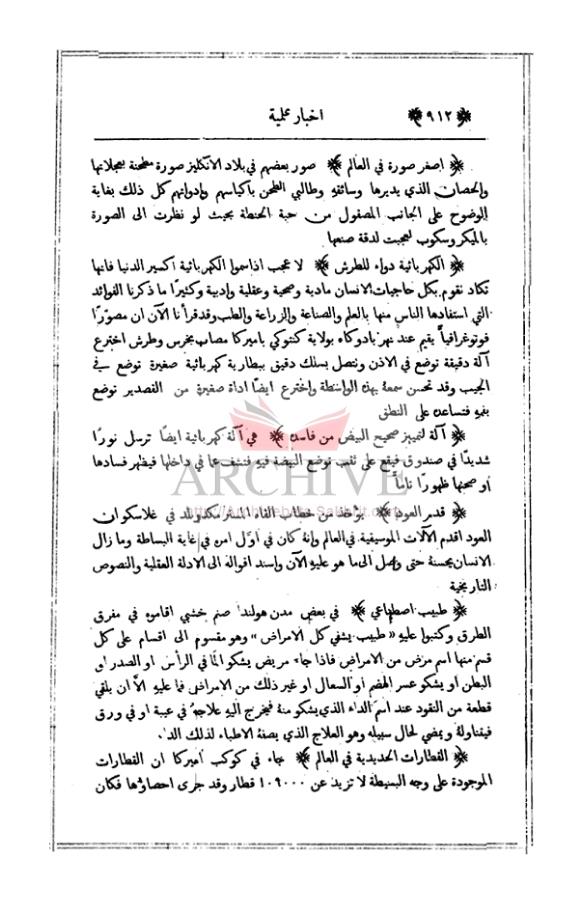 ﴿ ٩١٢ ﴾ اخبار علمية
﴿ اصغر صورة في العالم ﴾ صور بعضهم في بلاد الانكليز صورة مطحنة بعجلاتها
والحصان الذي يديرها وسائقهِ وطالبي الطحن باكياسهم وادواتهم كل ذلك بغاية
الوضوح على الجانب المصقول من حبة الحنطة بحيث لو نظرت الى الصورة
بالميكروسكوب لعجبت لدقة صنعها
﴿ الكهربائية دواء للطرش ﴾ لا عجب اذا سموا الكهربائية اكسير الدنيا فانها
تكاد تقوم بكل حاجيات الانسان مادية وصحية وعقلية وادبية وكثيرًا ما ذكرنا الفوائد
التي استفادها الناس منها بالعلم والصناعة والزراعة والطب وقد قرأنا الآن ان مصوّرًا
فوتوغرافياً يقيم عند نهر بادوكاه بولاية كنتوكي باميركا مصاب بخرس وطرش اخترع
آلة دقيقة توضع في الاذن وتتصل بسلك دقيق ببطارية كهربائية صغيرة توضع في
الجيب وقد تحسن سمعهُ بهذه الواسطة واخترع ايضًا اداة صغيرة من القصدير توضع
بفيهِ فتساعده على النطق
﴿ آلة لتمييز صحيح البيض من فاسده ﴾ هي آلة كهربائية ايضًا ترسل نورًا
شديدًا في صندوق فيقع على ثقب توضع البيضة فيهِ فتشف عما في داخلها فيظهر فسادها
او صحتها ظهورًا تاماً
ARCHIVE
﴿ قدم العود ﴾ يؤخذ من خطاب القاه المستر مكدونلد في غلاسكو ان
العود اقدم الآلات الموسيقية في العالم وانهُ كان في اوّل امره في غاية البساطة وما زال
الانسان يحسنهُ حتى وصل الى ما هو عليهِ الآن واسند اقوالهُ الى الادلة العقلية والنصوص
التاريخية
﴿ طبيب اصطناعي ﴾ في بعض مدن هولندا صنم خشبي اقاموه في مفرق
الطرق وكتبوا عليهِ « طبيب يشفي كل الامراض » وهو مقسوم الى اقسام على كل
قسم منها اسم مرض من الامراض فاذا جاء مريض يشكو المًا في الرأس او الصدر او
البطن او يشكو عسر الهضم او السعال او غير ذلك من الامراض فما عليهِ الاَّ ان يلقي
قطعة من النقود عند اسم الداء الذي يشكو منهُ فيخرج اليهِ علاجهُ في عبة او في ورق
فيتناولهُ ويمضي لحال سبيله وهو العلاج الذي يصفهُ الاطباء لذلك الداء
﴿ القطارات الحديدية في العالم ﴾ جاء في كوكب اميركا ان القطارات
الموجودة على وجه البسيطة لا تزيد عن ١٠٩٠٠٠ قطار وقد جرى احصاؤها فكان